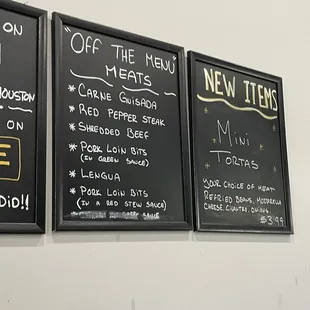 ON
HOUSTON
ON
E
DID!!
"OFF THE MENU"
MEATS
* CARNE GUISADA
* RED PEPPER STEAK
* SHREDDED BEEF
* PORK LOIN BITS
(IN GREEN SAUCE)
* LENGUA
* PORK LOIN BITS
(IN A RED STEW SAUCE)
SAUCE)
NEW ITEMS
MINI
TORTAS
YOUR CHOICE OF MEAT
REFRIED BEANS, MOZZARELLA
CHEESE, CILANTRO, ONIONS.
$3.99